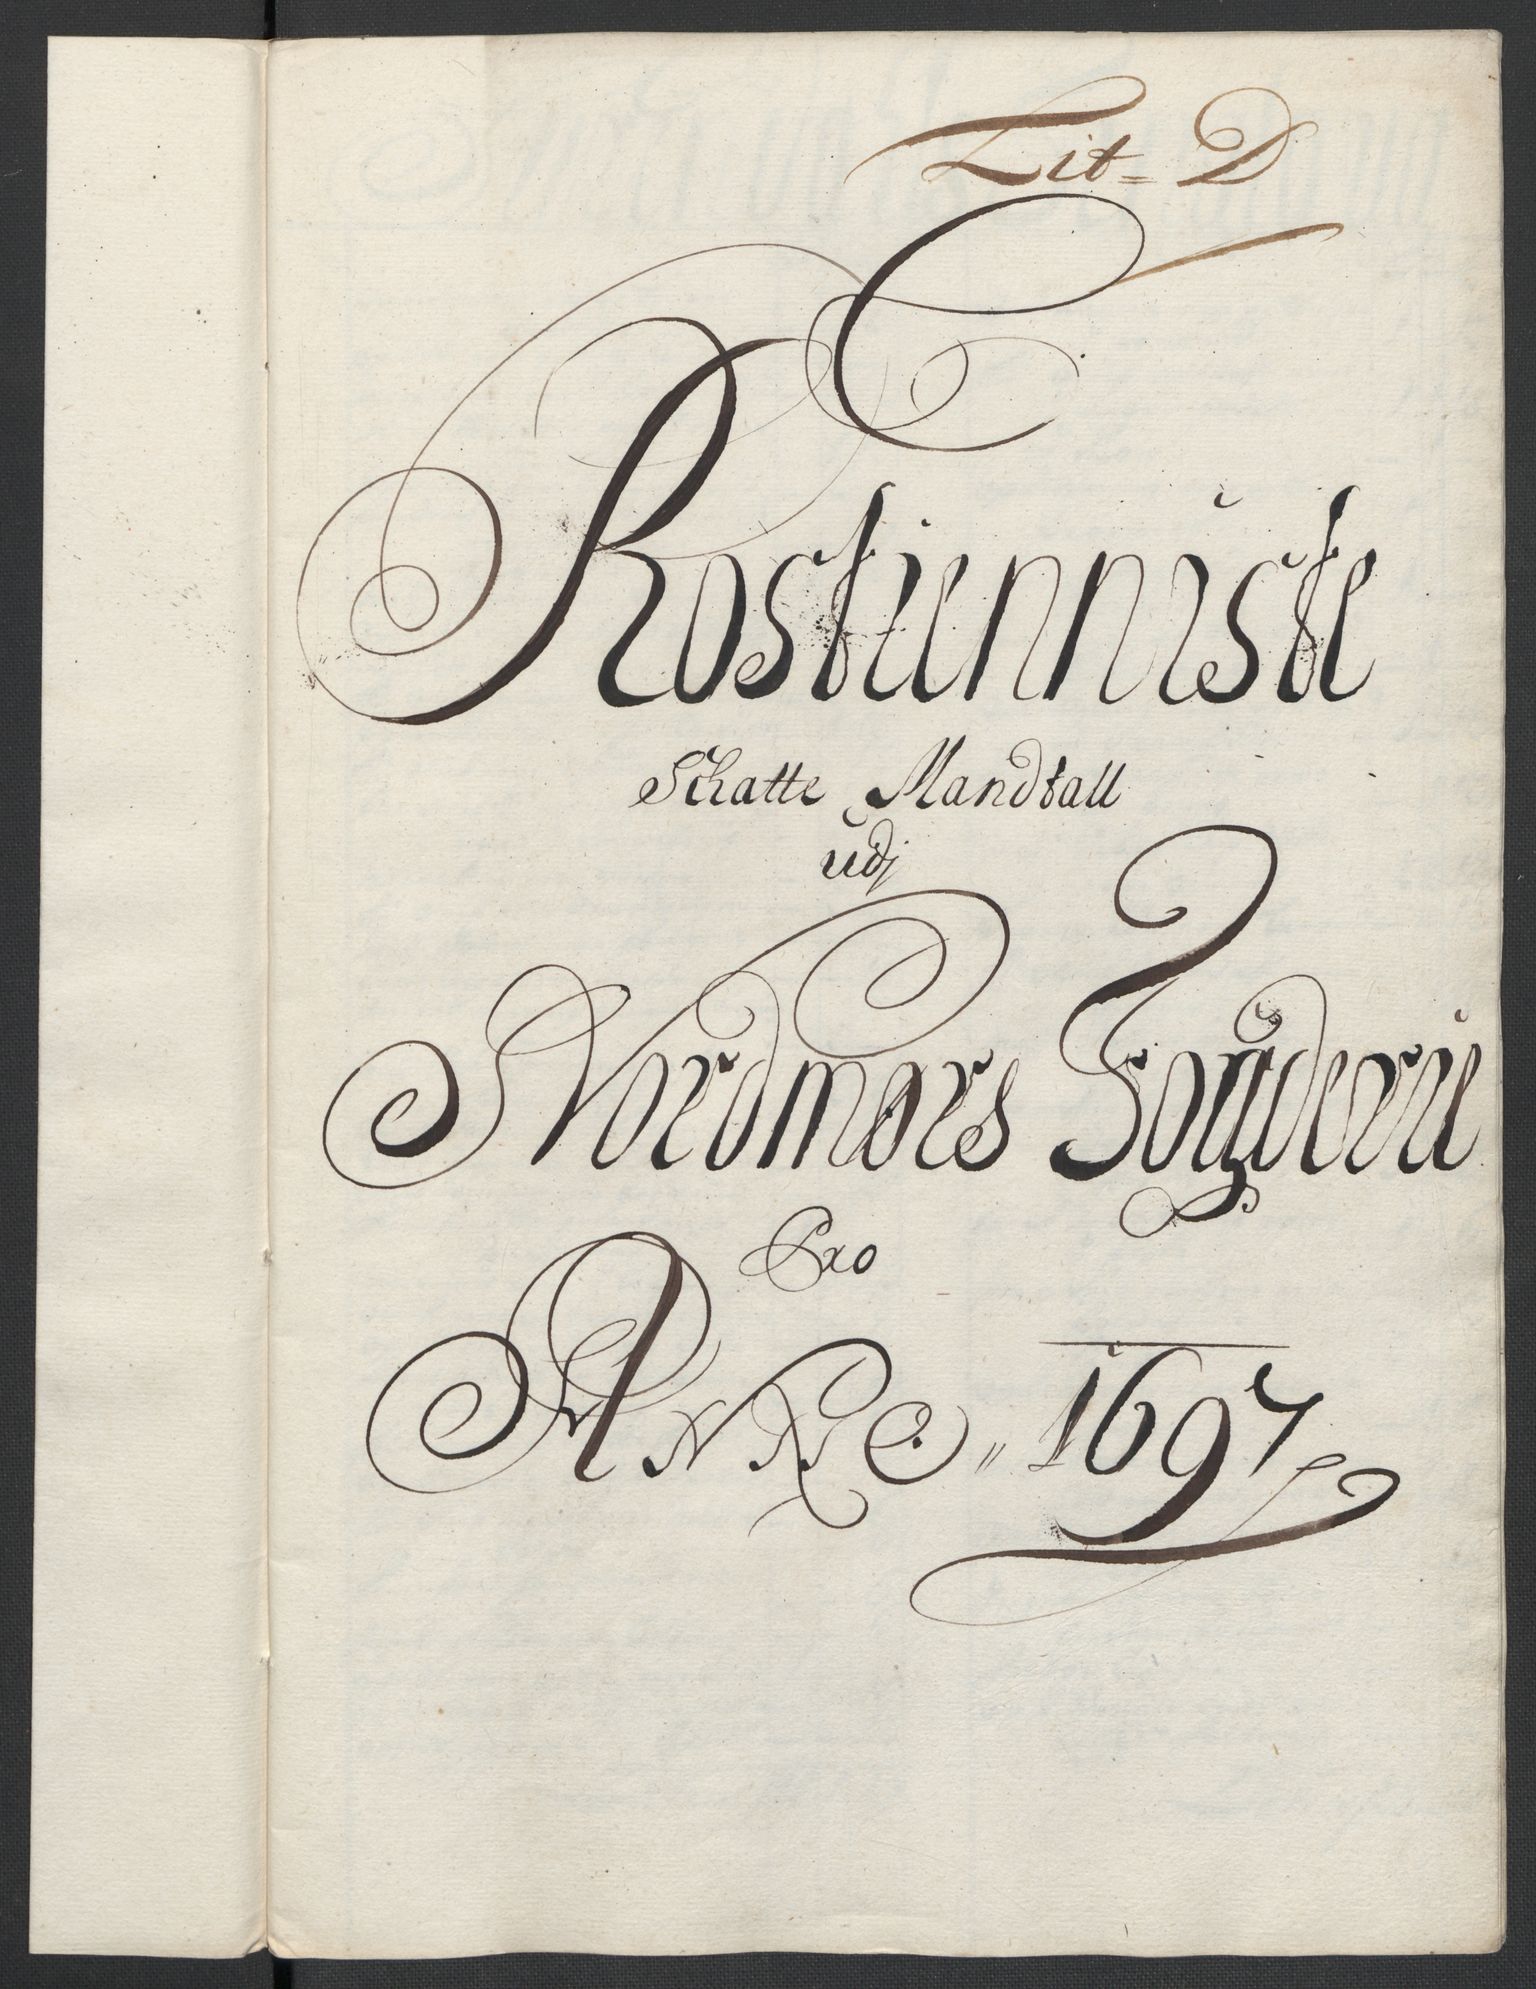 Lit= D
Rostienniste
Schatte Mandtall
udj
Nordmørs Fougderie
Pro
ANNO,, 1697